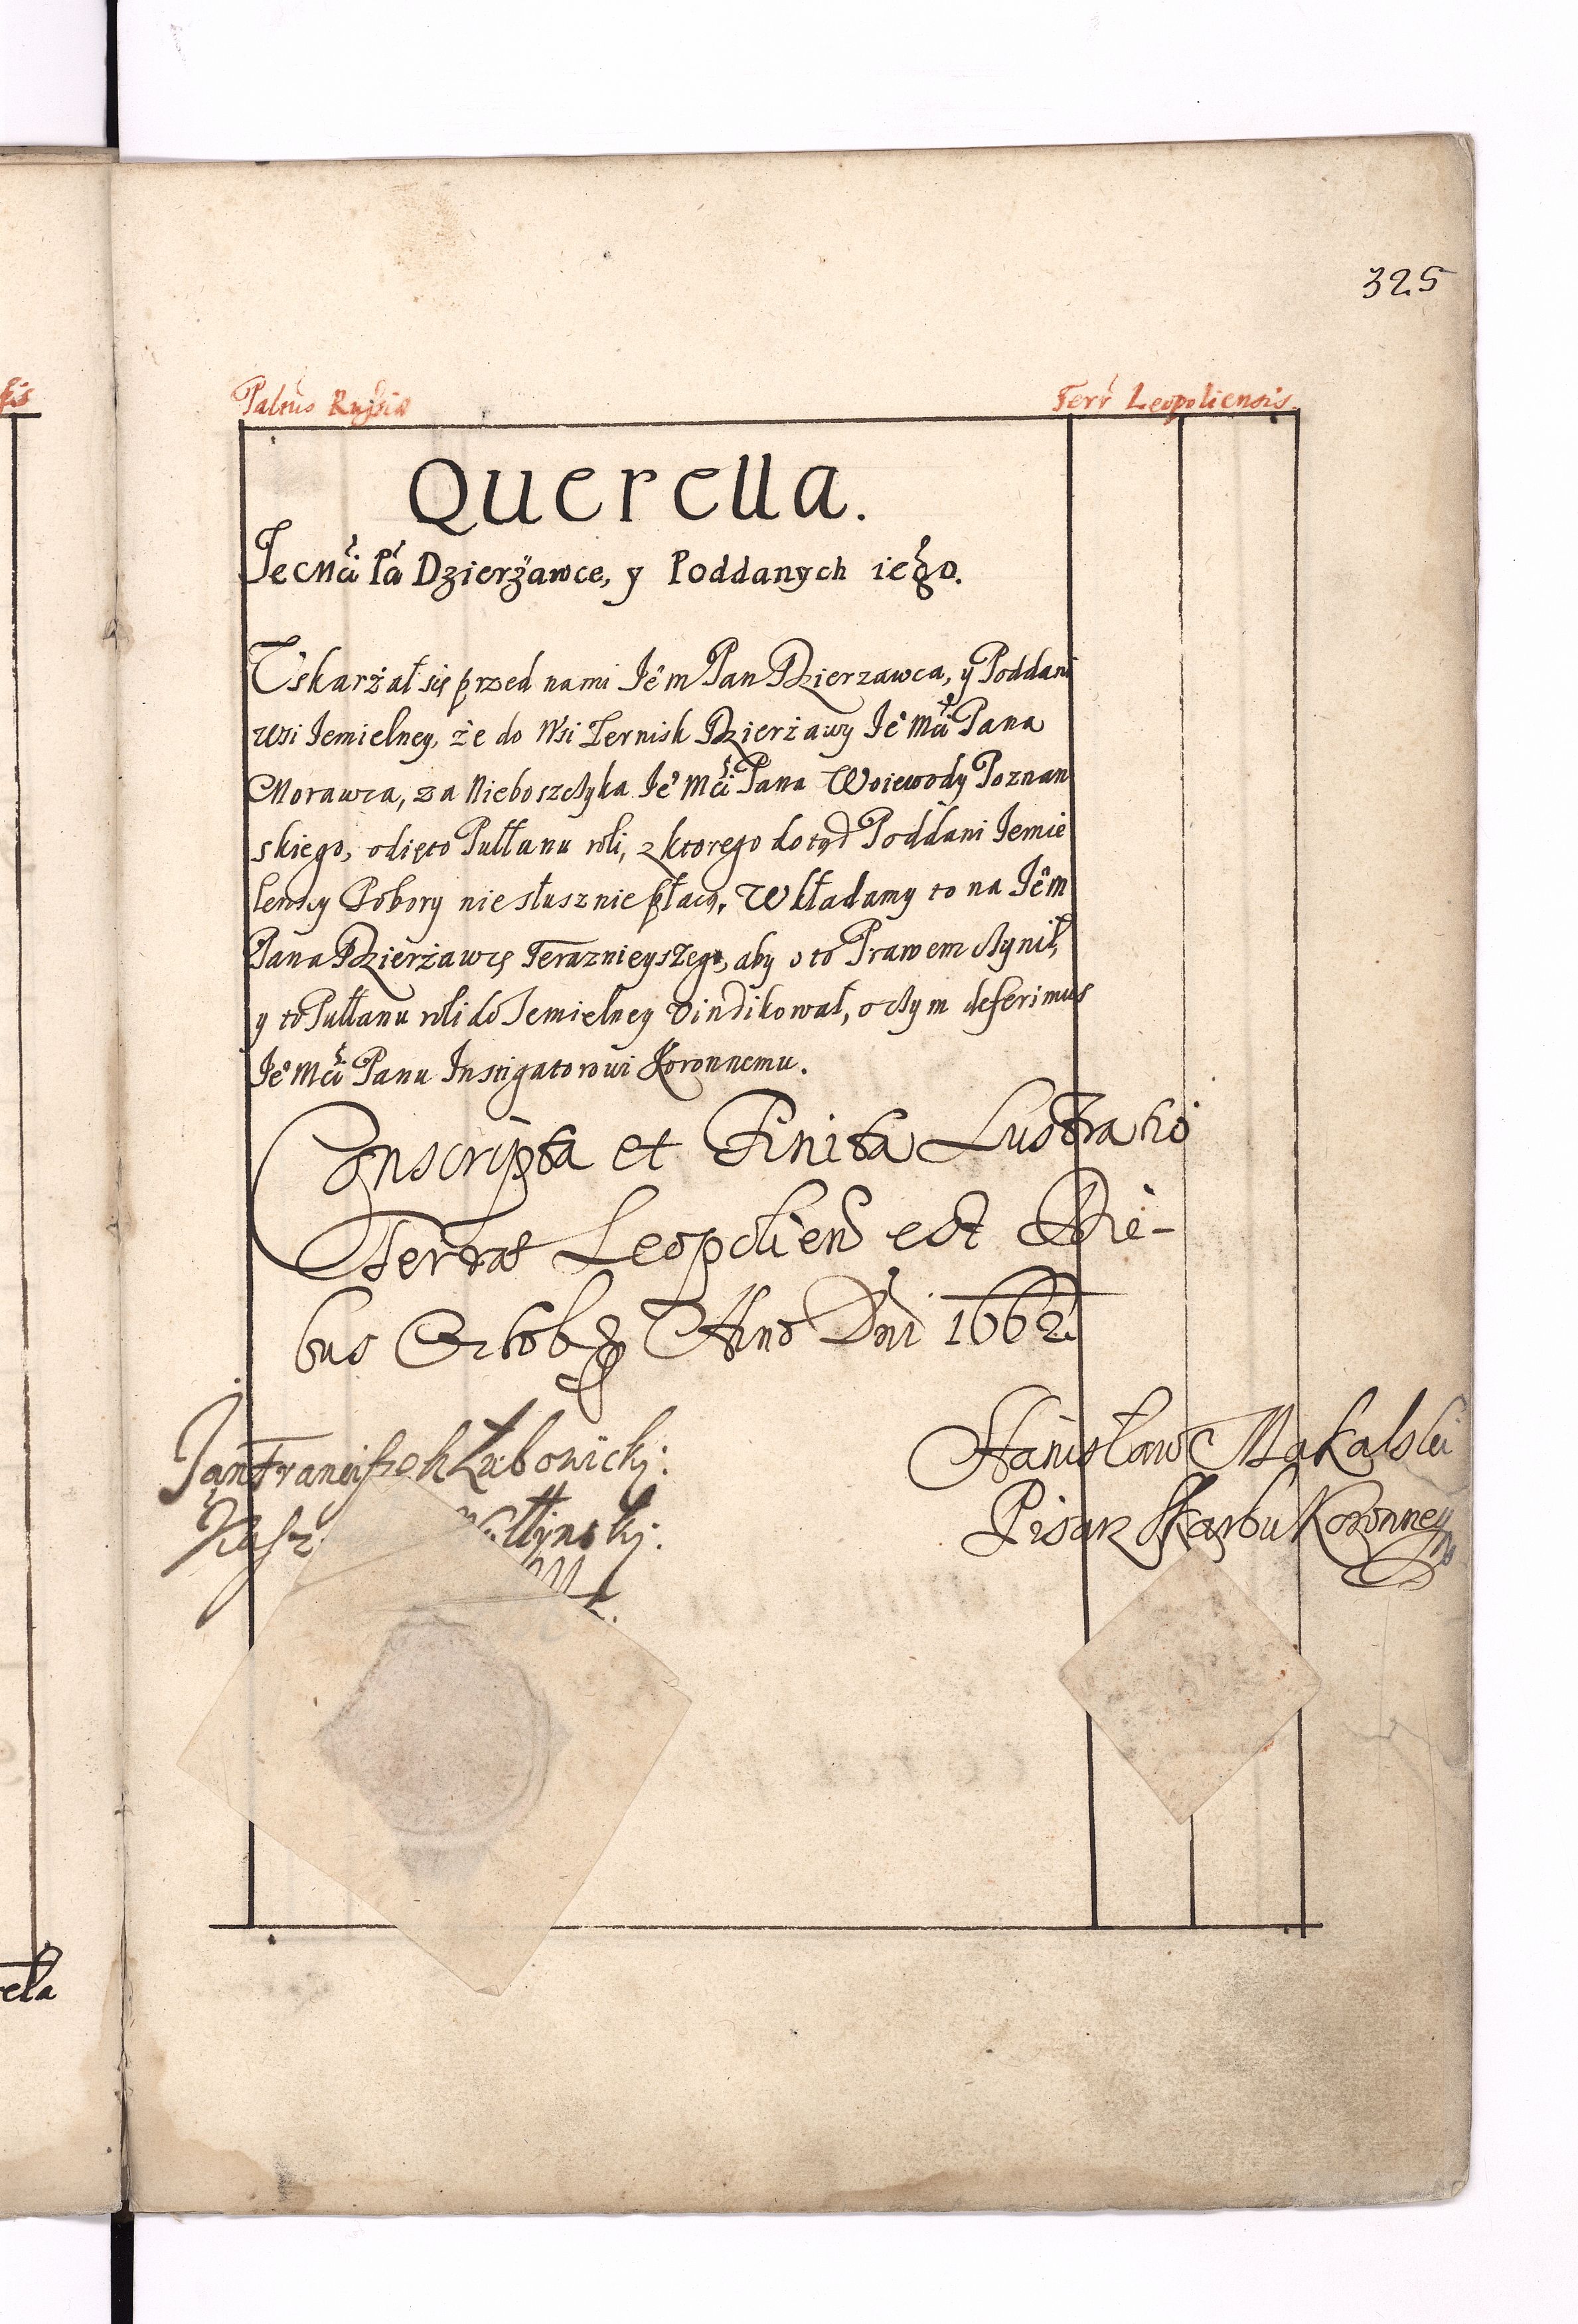 325
Palťus Russiæ
Terŕ Leopoliensis
Querella.
Jecmći Pá Dzierżawce, y Poddanych iego.
Uskarżał się przed nami Jeͦm Pan Dzierzawca, y Poddani
wsi Jemielney, że do Wsi Zernisk Dzierżawy Jeͦ Mći Pana
Morawca, za Nieboszczyka Jeͦ Mći Pana Woiewody Poznan
skiego, odięto Pułłanu roli, z ktorego dotąd Poddani Jemie
lenscy Pobory niesłusznie płacą. Wkładamy to na Jeͦm
Pana Dzierżawcę Teraznieyszego, aby o to Prawem czynił,
y to Pułłanu roli do Jemielney vindikował, o czym deferimus
Jeͦ Mći Panu Instigatorowi Koronnemu.
Conscripta et Finita Lustratio
Terræ Leopolien est Die-
bus Octob Ano Dni 1662.
Jan Franciszek Lubowicki:
Stanisław Makalski
Pisarz Skarbu Koronneго
ella